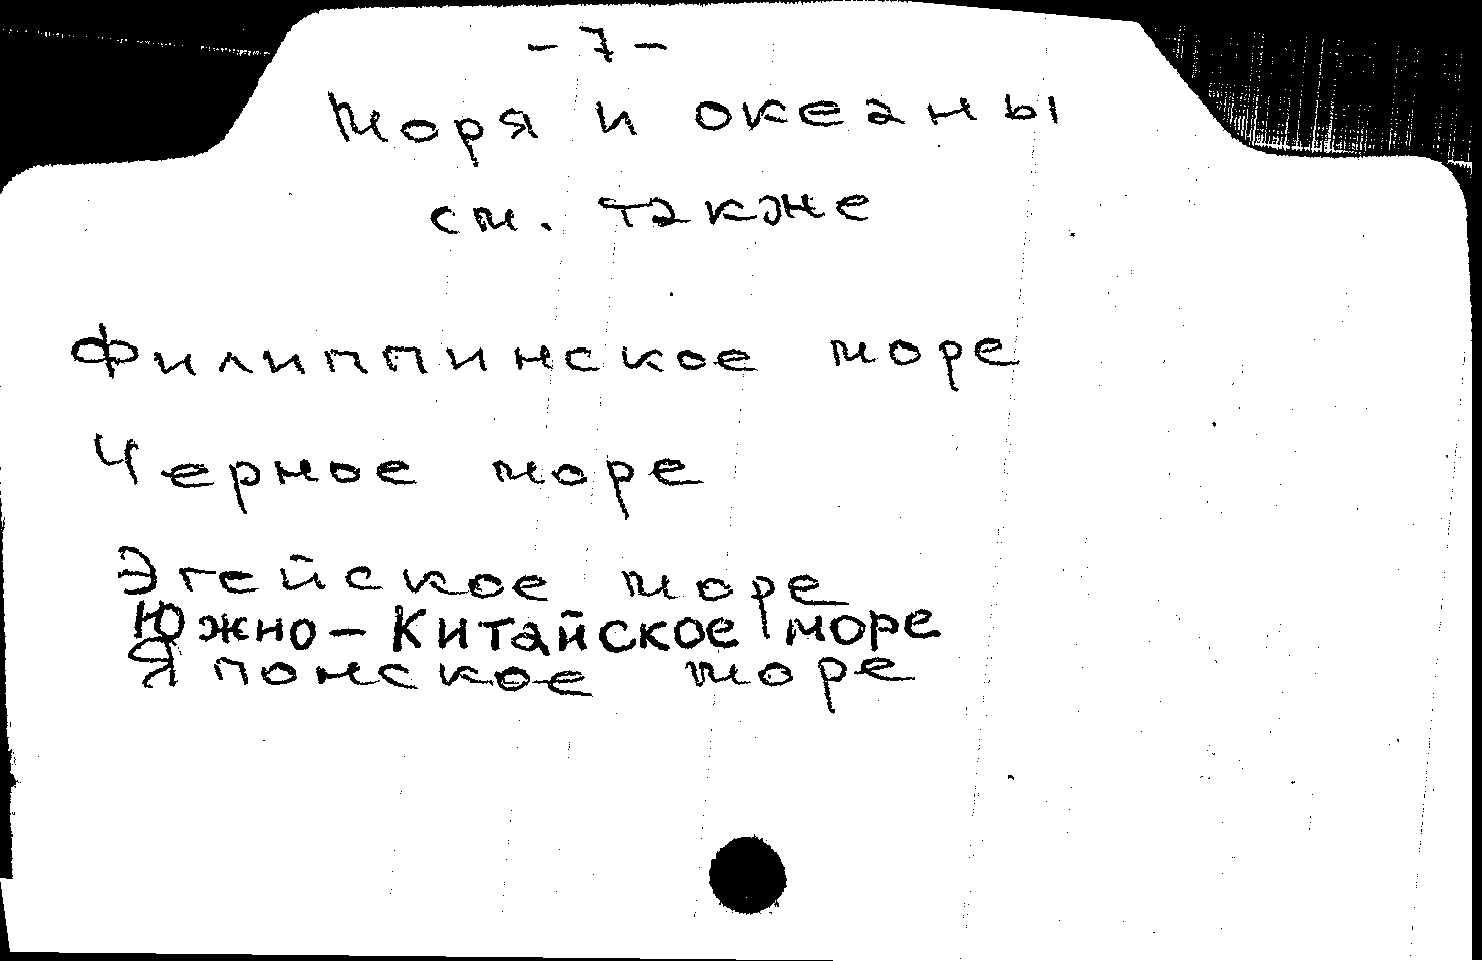 - 7 -
Моря и океаны
см. также
Филиппинское море
Черное море
Эгейское море
Южно-Китайское море
Японское море